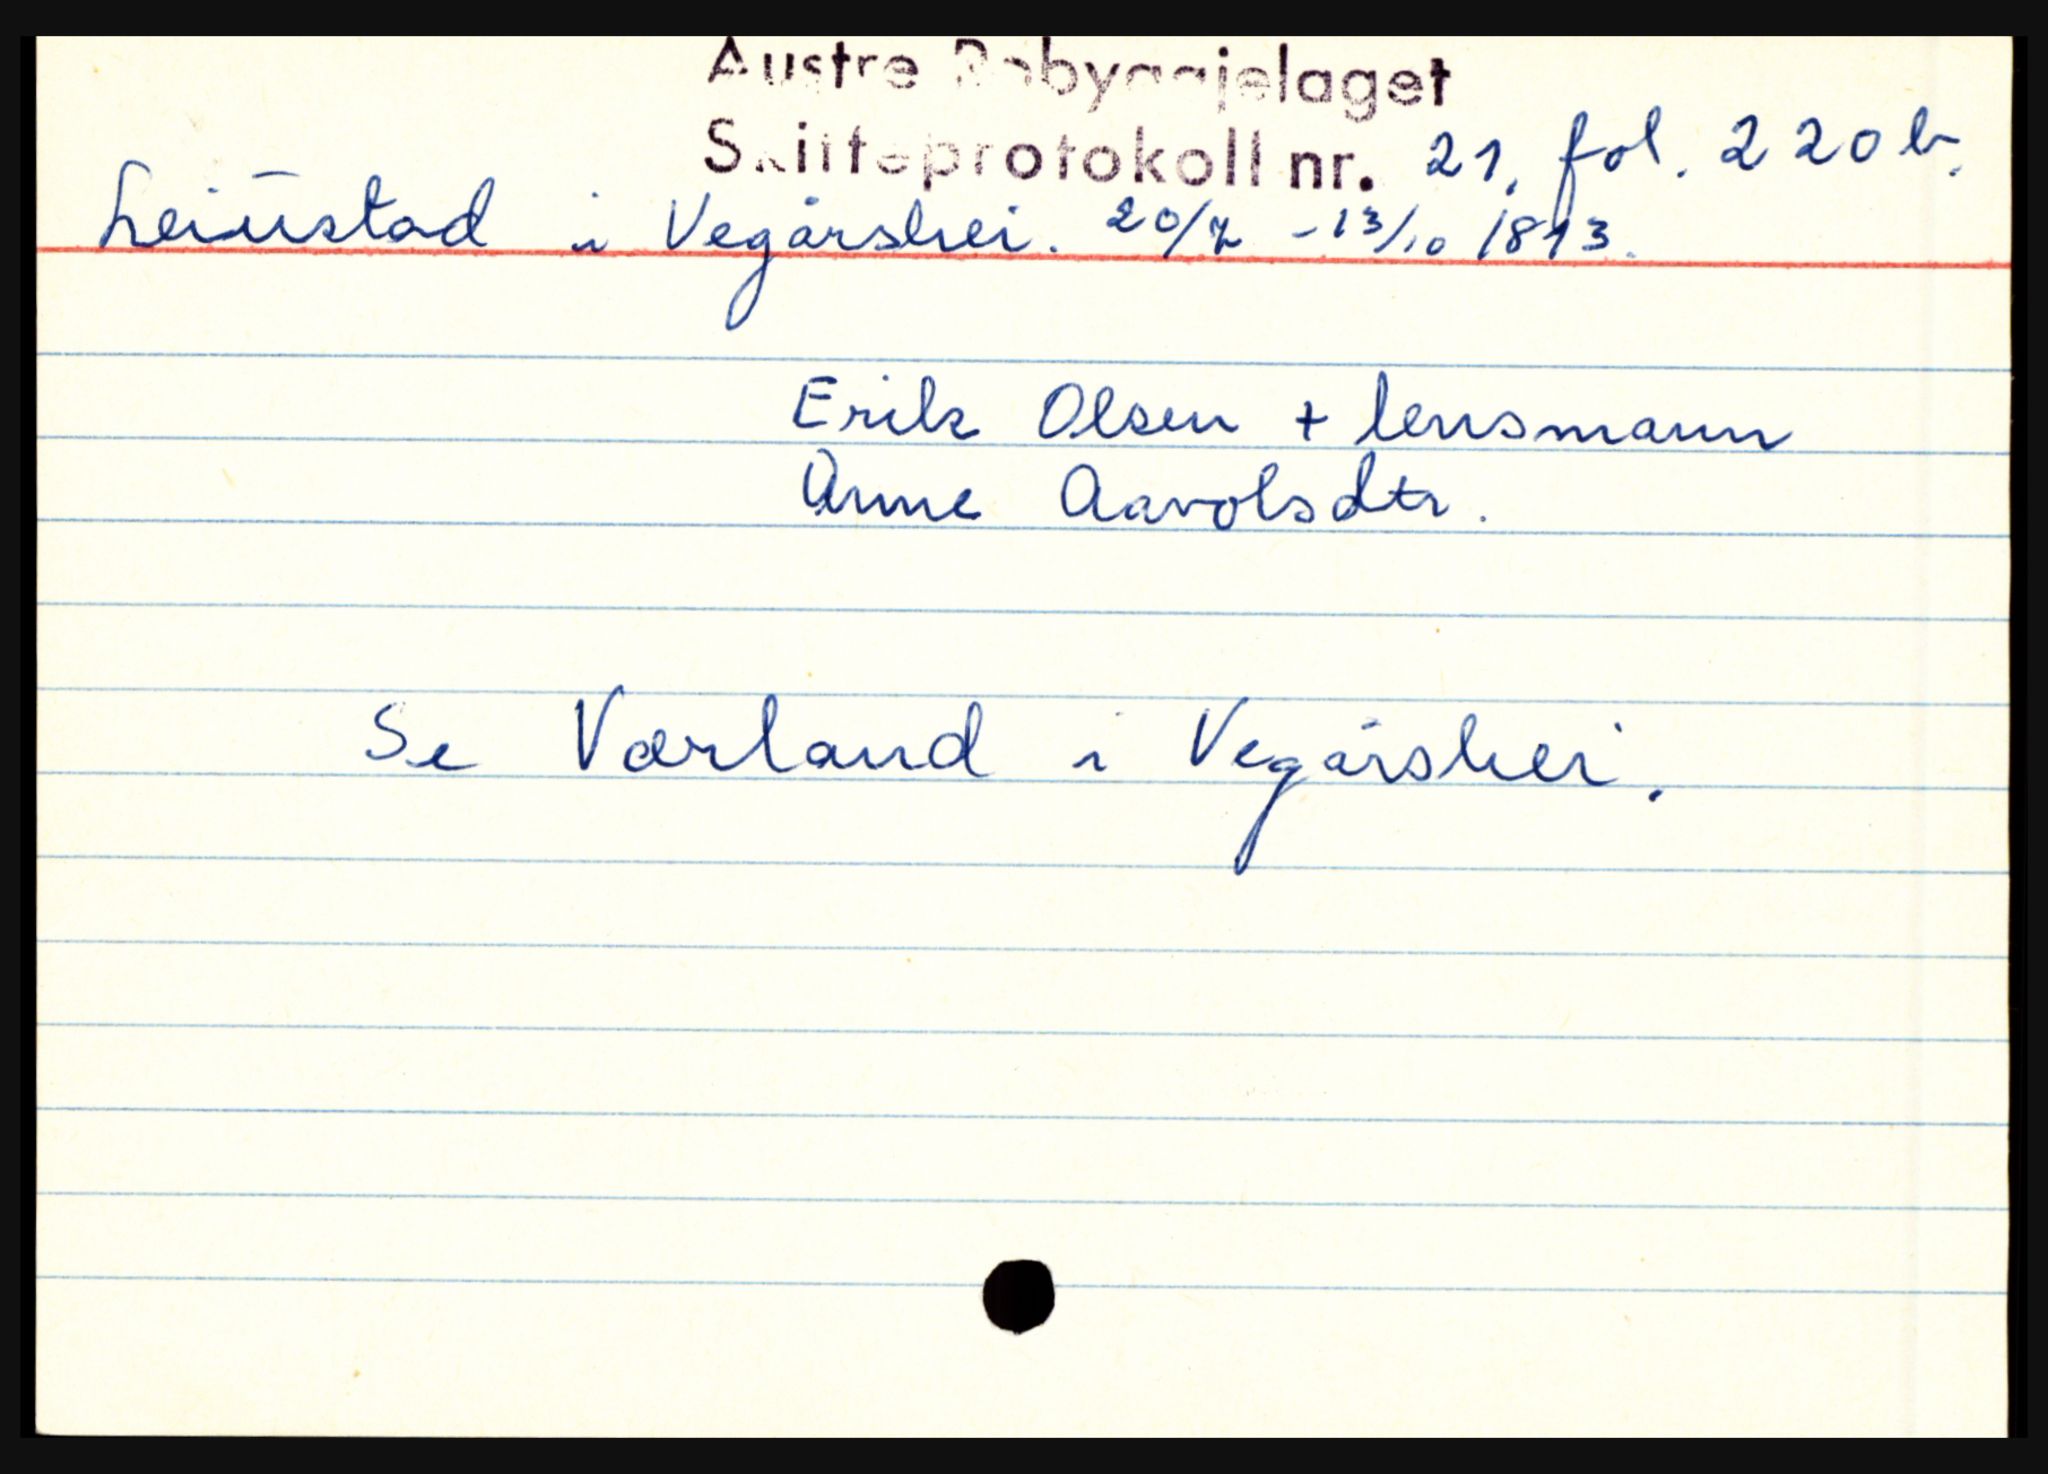 Austre Robyggjelaget
Skifteprotokoll nr. 21, fol. 220 b.
Leiūstad i Vegårshei. 20/7 - 13/10 1813.
Erik Olsen + lensmann
Anne Aavolsdtr.
Se Værland i Vegårshei.